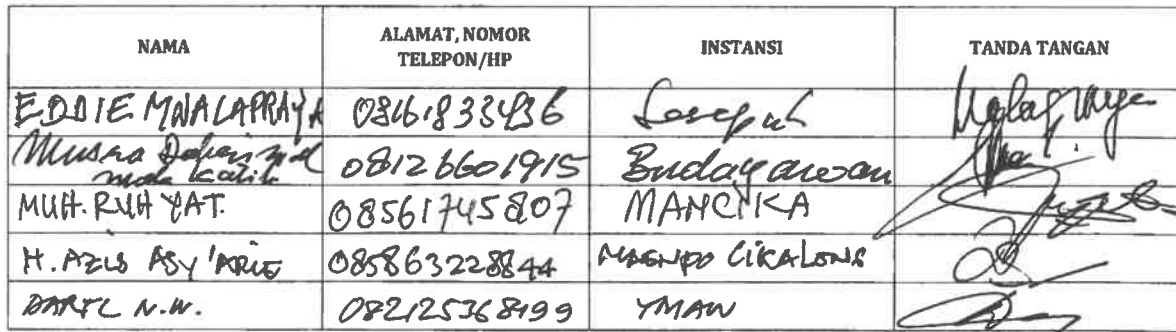 NAMA
ALAMAT, NOMOR
TELEPON/HP
INSTANSI
TANDA TANGAN
EDDIE MNALAPRAYA 08161833436 Sesepuh
Musra Dahrizal 081266601915 Budayawan
MUH. RUHYAT. 08561745807 MANCIKA
H. AZIS ASY'ARIE 085863228844 MAENPO CIKALONG
DARYL N.W. 082125368199 YMAW